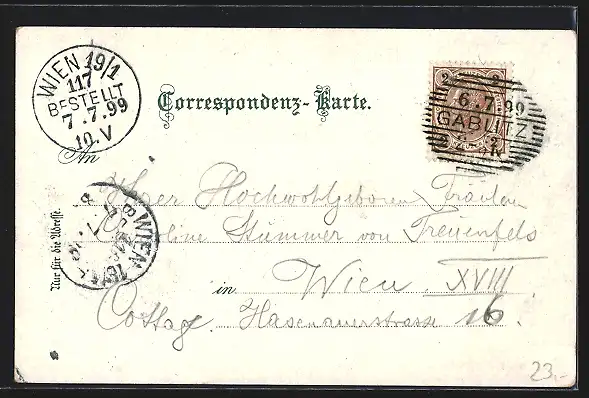 WIEN 19/1
117
BESTELLT
7.7.99
10.V
Correspondenz-Karte.
2 2
6.7.99
GABLITZ
An
Ihrer Hochwohlgeboren Fräulein
Caroline Stummer von Treuenfels
WIEN
Nur für die Adresse.
in Wien XVIII
Cottage. Hasenauerstrasse 16.
23.-